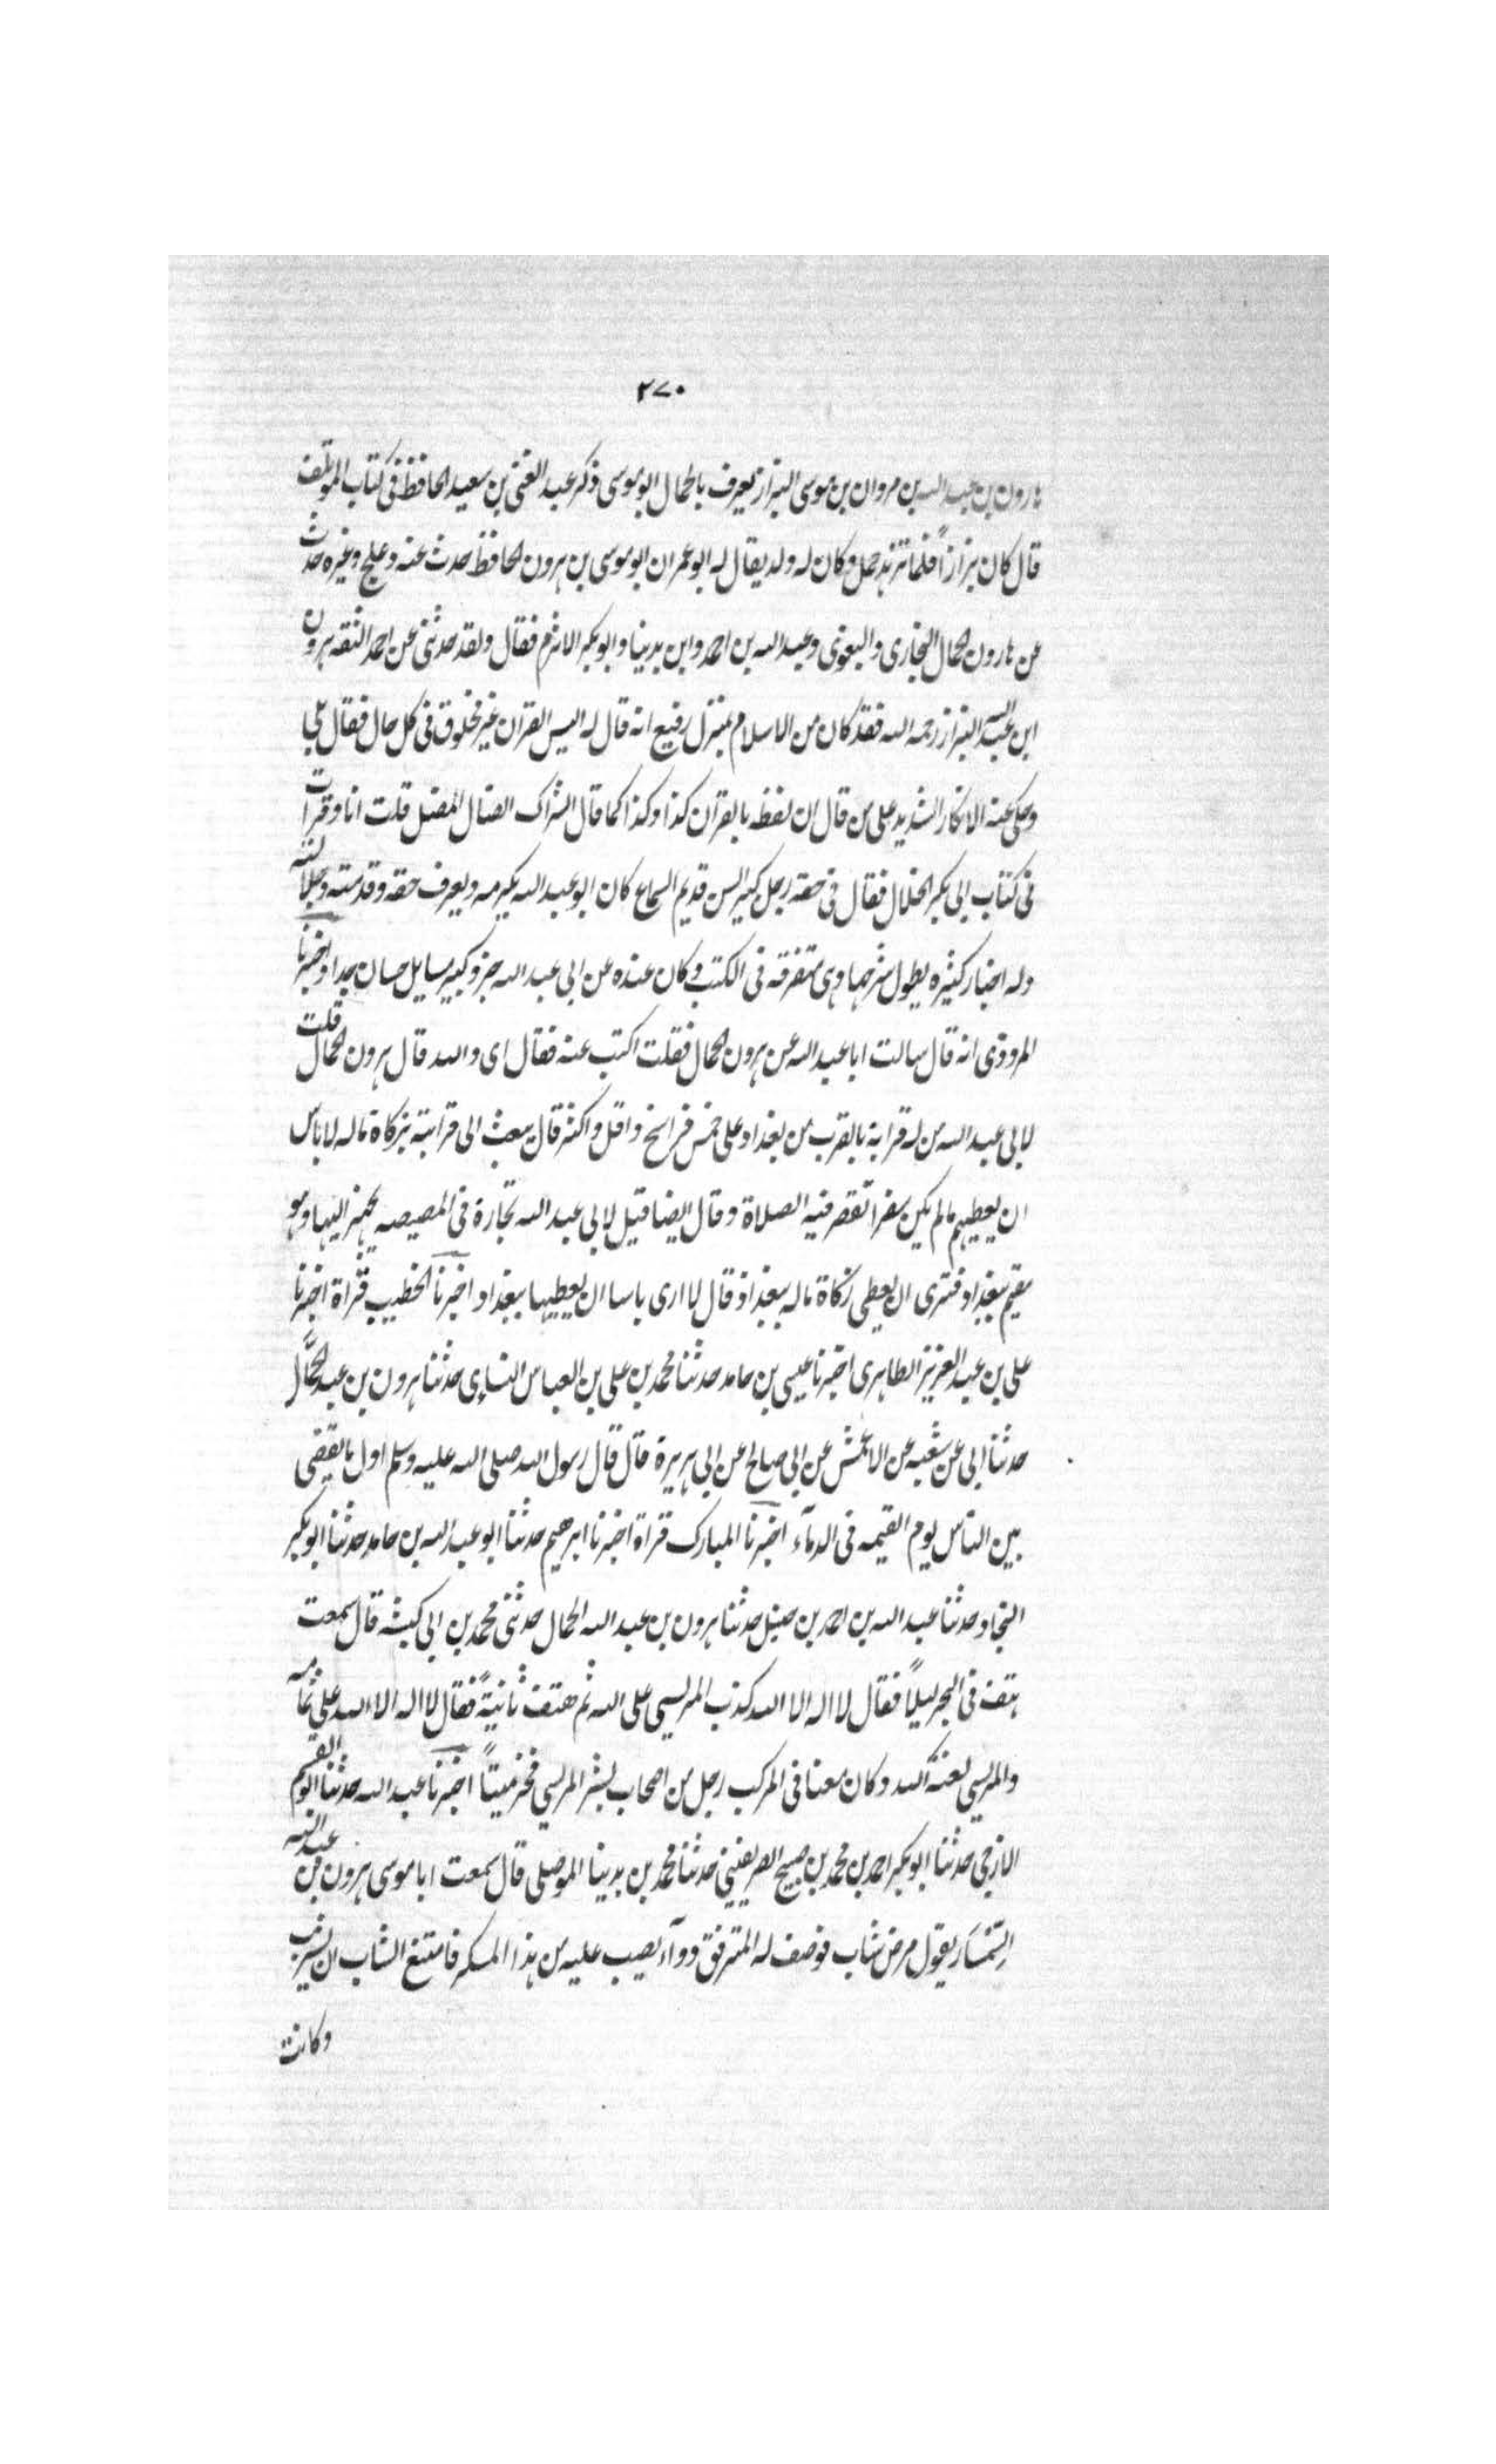 ٢٧٠
هارون بن عبد الله بن مروان بن موسى البزاز يعرف بالحمال ابو موسى ذكر عبد الغنى بن سعيد الحافظ فى كتاب الموتلف
قال كان بزازاً فلما تزهد حمل وكان له ولد يقال له ابو عمران ابو موسى بن هرون الحافظ حدث عنه دعلج وغيره حدث
عن هارون الحمال البخارى والبغوى وعبد الله بن احمد وابن بدينا وابو بكر الاثرم فقال ولقد حدثنى عن احمد الثقه هرون
ابن عبد الله البزاز رحمه الله فقد كان من الاسلام بمنزل رفيع انه قال له اليس القران غير مخلوق فى كل حال فقال بلى
وحكى عنه الانكار الشديد على من قال ان لفظه بالقران كذا وكذا كما قال الشراك الضال المضل قلت انا وقرات
فى كتاب ابى بكر الخلال فقال فى حقه رجل كبير السن قديم السماع كان ابو عبد الله يكرمه ويعرف حقه وقدمته وجلالته
وله اخبار كثيره يطول شرحها وهى متفرقه فى الكتب وكان عنده عن ابى عبد الله جزو كبير مسايل حسان جدا واخبرنا
المروذى انه قال سالت ابا عبد الله عن هرون الحمال فقلت اكتب عنه فقال اى والله قال هرون الحمال قلت
لابى عبد الله من له قرابة بالقرب من بغداد على خمس فراسخ واقل واكثر قال يبعث الى قرابته بزكاة ماله لاباس
ان يعطيهم مالم يكن سفرا تقصر فيه الصلاة وقال ايضا قيل لابى عبد الله تجارة فى المصيصه يجهز اليها وهو
مقيم ببغداد فترى ان يعطى زكاة ماله ببغداد قال لا ارى باسا ان يعطيها ببغداد اخبرنا الخطيب قراة اخبرنا
على بن عبد العزيز الطاهرى اخبرنا عيسى بن حامد حدثنا محمد بن على بن العباس النساى حدثنا هرون بن عبد الحمّال
حدثنا ابى عن شعبه عن الاعمش عن ابى صالح عن ابى هريرة قال قال رسول الله صلى الله عليه وسلم اول ما يقضى
بين الناس يوم القيمه فى الدمآء اخبرنا المبارك قراة اخبرنا ابرهيم حدثنا ابو عبد الله بن حامد حدثنا ابو بكر
النجاد حدثنا عبد الله بن احمد بن حنبل حدثنا هرون بن عبد الله الحمال حدثنى محمد بن ابى كبشه قال سمعت
هتف فى البحر ليلاً فقال لا اله الا الله كذب المريسى على الله ثم هتف ثانيةً فقال لا اله الا الله على ثمامه
والمريسى لعنة الله وكان معنا فى المركب رجل من اصحاب بشر المريسى فخر ميتاً اخبرنا عبد الله حدثنا ابو القسم
الازجى حدثنا ابو بكر احمد بن محمد بن صبيح الصريفينى حدثنا محمد بن بدينا الموصلى قال سمعت ابا موسى هرون بن عبد الله
السّمسَار يقول مرض شاب فوصف له المترفق دوآء يصيب عليه من هذا المسكر فامتنع الشاب ان يشرب
وكانت